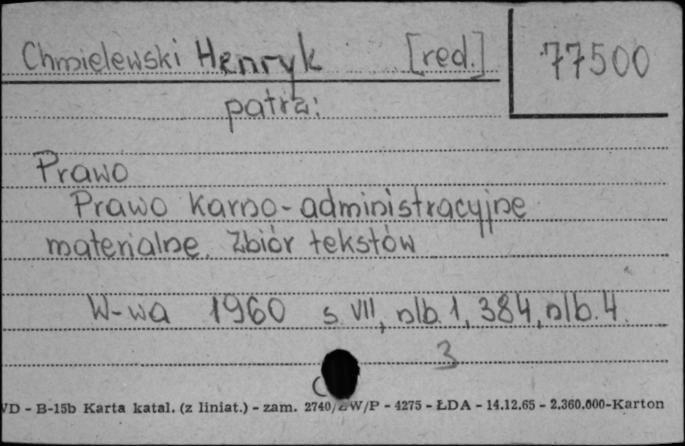 Chmielewski Henryk [red.] 77500
patrz:
Prawo
Prawo karno-administracyjne
materialne. Zbiór tekstów
W-wa 1960 s. VII, nlb. 1, 384, nlb. 4.
3
VD - B-15b Karta katal. (z liniat.) - zam. 2740/ZW/P - 4275 - ŁDA - 14.12.65 - 2.360.000-Karton